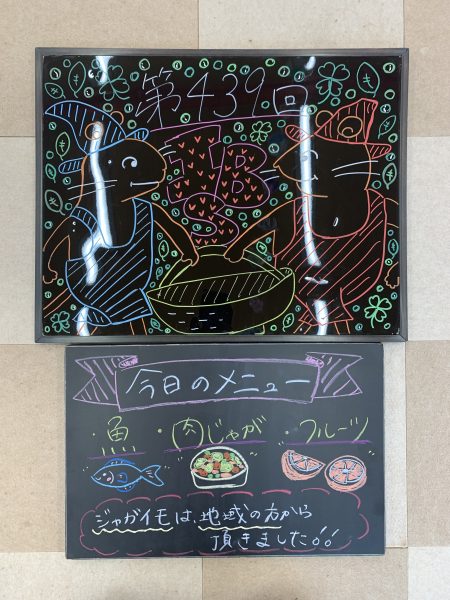 第439回
JBS
今日のメニュー
・魚 ・肉じゃが ・フルーツ
ジャガイモは、地域の方から
頂きました!!